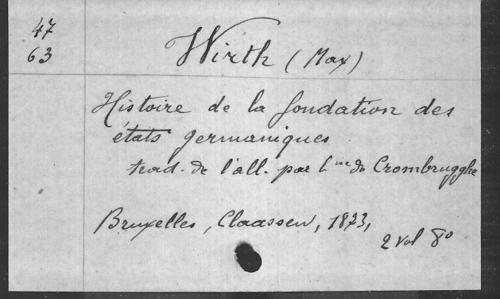 47
63
Wirth (Max)
Histoire de la fondation des
états germaniques
trad. de l'all. par de Crombrugghe
Bruxelles, Claassen, 1873,
2 vol 8o